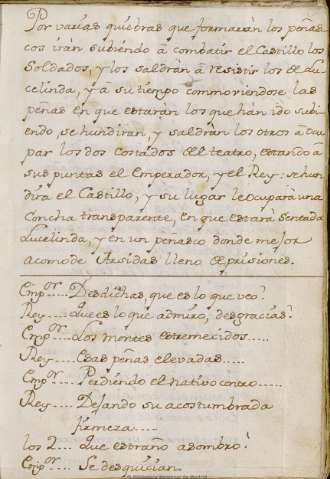 Por varias quiebras que formarán los peñas
cos irán subiendo â combatir el Castillo los
Soldados, y los saldrán â resistir los de Lu
celinda, y â su tiempo commoviendose las
peñas en que estarán los que hán ido subi
endo, se hundirán, y saldrán los otros â ocu
par los dos Costados del teatro, estando â
sus puntas el Emperador, y el Rey: se hun
dirá el Castillo, y su lugar le ocupará una
Concha transparente, en que estará sentada
Lucelinda, y en un peñasco donde mejor
acomode Arsidas lleno de prisiones.
Empor..... Desdichas, que es lo que veo?
Rey..... Que es lo que admiro, desgracias?
Empor..... Los montes estremecidos.....
Rey..... Esas peñas elevadas.....
Empor..... Perdiendo el nativo centro.....
Rey..... Dejando su acostumbrada
firmeza.....
los 2.... Que estraño asombro!
Empor.... Se desquician.